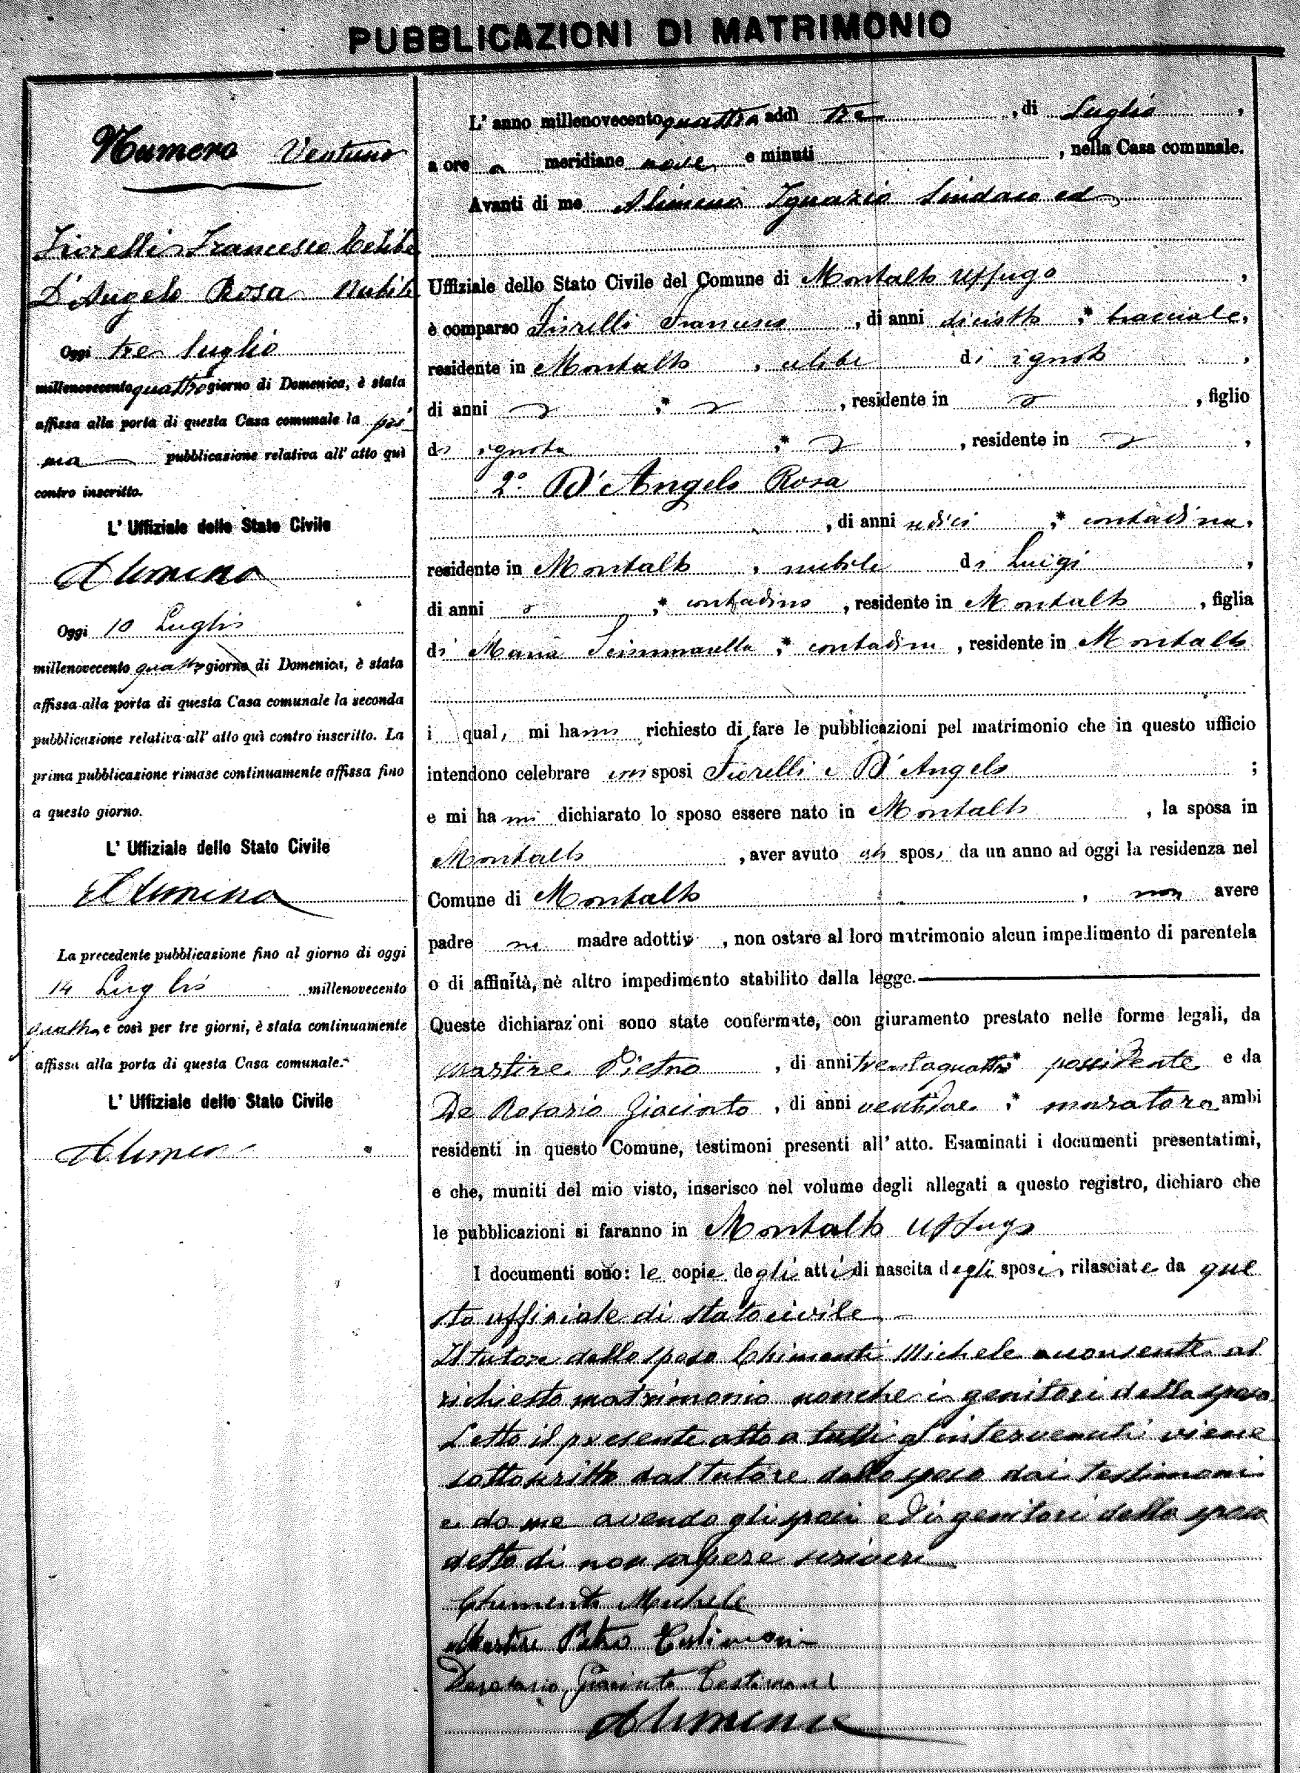 PUBBLICAZIONI DI MATRIMONIO
Numero Ventuno
Fiorelli Francesco Celibe
D'Angelo Rosa Nubile
Oggi tre luglio
millenovecento quattro giorno di Domenica, è stata
affissa alla porta di questa Casa comunale la pri-
ma pubblicazione relativa all'atto quì
contro inscritto.
L'Uffiziale dello Stato Civile
Alimena
Oggi 10 Luglio
millenovecento quattro giorno di Domenica, è stata
affissa alla porta di questa Casa comunale la seconda
pubblicazione relativa all'atto quì contro inscritto. La
prima pubblicazione rimase continuamente affissa fino
a questo giorno.
L'Uffiziale dello Stato Civile
Alimena
La precedente pubblicazione fino al giorno di oggi
14 Luglio millenovecento
quattro e così per tre giorni, è stata continuamente
affissa alla porta di questa Casa comunale.
L'Uffiziale dello Stato Civile
Alimena
L'anno millenovecento quattro addì tre, di Luglio,
a ore a meridiane nove e minuti , nella Casa comunale.
Avanti di me Alimena Ignazio Sindaco ed
Uffiziale dello Stato Civile del Comune di Montalto Uffugo,
è comparso Fiorelli Francesco, di anni diciotto, * bracciale,
residente in Montalto, celibe di ignoto,
di anni , * , residente in , figlio
di ignota , * , residente in ,
2º D'Angelo Rosa
, di anni sedici, * contadina,
residente in Montalto, nubile di Luigi,
di anni , * contadino, residente in Montalto, figlia
di Maria Scimmarella, * contadina, residente in Montalto
i quali mi hanno richiesto di fare le pubblicazioni pel matrimonio che in questo ufficio
intendono celebrare essi sposi Fiorelli e D'Angelo ;
e mi hanno dichiarato lo sposo essere nato in Montalto, la sposa in
Montalto, aver avuto gli sposi da un anno ad oggi la residenza nel
Comune di Montalto, non avere
padre nè madre adottivi, non ostare al loro matrimonio alcun impedimento di parentela
o di affinità, nè altro impedimento stabilito dalla legge.
Queste dichiarazioni sono state confermate, con giuramento prestato nelle forme legali, da
Martire Pietro, di anni trentaquattro * possidente e da
De Rosario Giacinto, di anni ventidue, * muratore ambi
residenti in questo Comune, testimoni presenti all'atto. Esaminati i documenti presentatimi,
e che, muniti del mio visto, inserisco nel volume degli allegati a questo registro, dichiaro che
le pubblicazioni si faranno in Montalto Uffugo
I documenti sono: le copie degli atti di nascita degli sposi, rilasciate da que
sto uffiziale di stato civile
Il tutore dello sposo Chimenti Michele acconsente al
richiesto matrimonio nonche i genitori della sposa
Letto il presente atto a tutti gl'intervenuti viene
sottoscritto dal tutore dello sposo dai testimoni
e da me avendo gli sposi ed i genitori della sposa
detto di non sapere scrivere
Chimenti Michele
Martire Pietro Testimoni
Derosario Giacinto Testimoni
Alimena